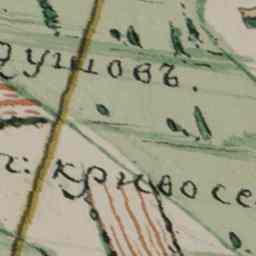 душовъ.
ч: кривосе